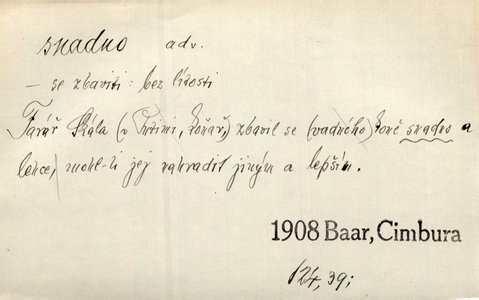 snadno adv.
– se zbaviti: bez lítosti
Farář Skála (v Putimi, koňař,) zbavil se (vadného) koně snadno a
lehce, mohl-li jej nahradit jiným a lepším.
1908 Baar, Cimbura
124, 39;